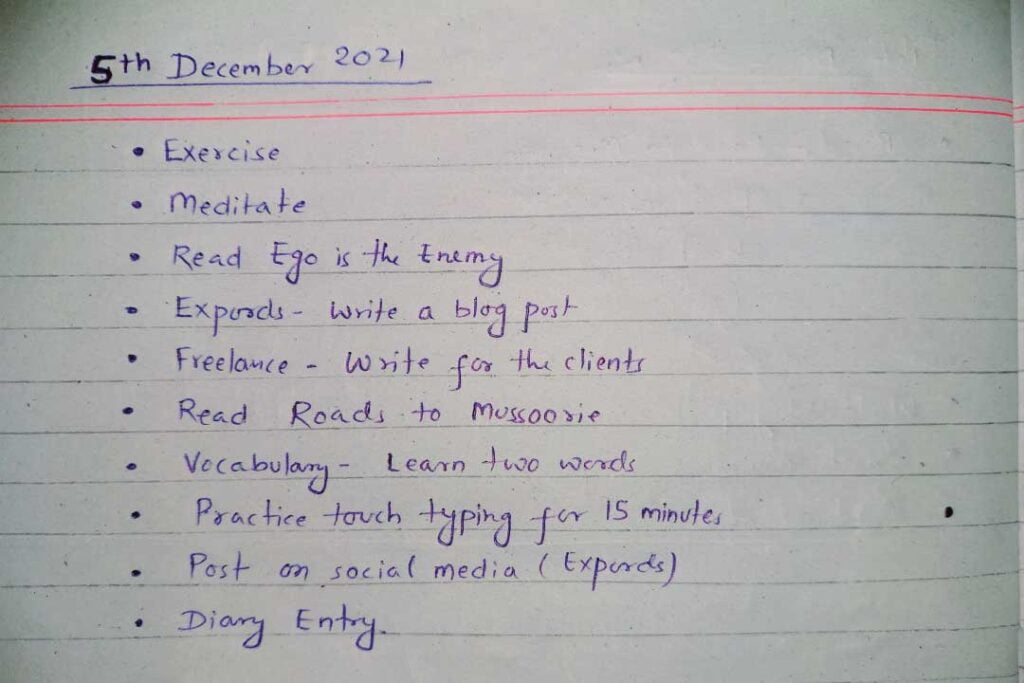 5th December 2021
• Exercise
• Meditate
• Read Ego is the Enemy
• Expords - Write a blog post
• Freelance - Write for the clients
• Read Roads to Mussoorie
• Vocabulary - Learn two words
• Practice touch typing for 15 minutes
• Post on social media (Expords)
• Diary Entry.